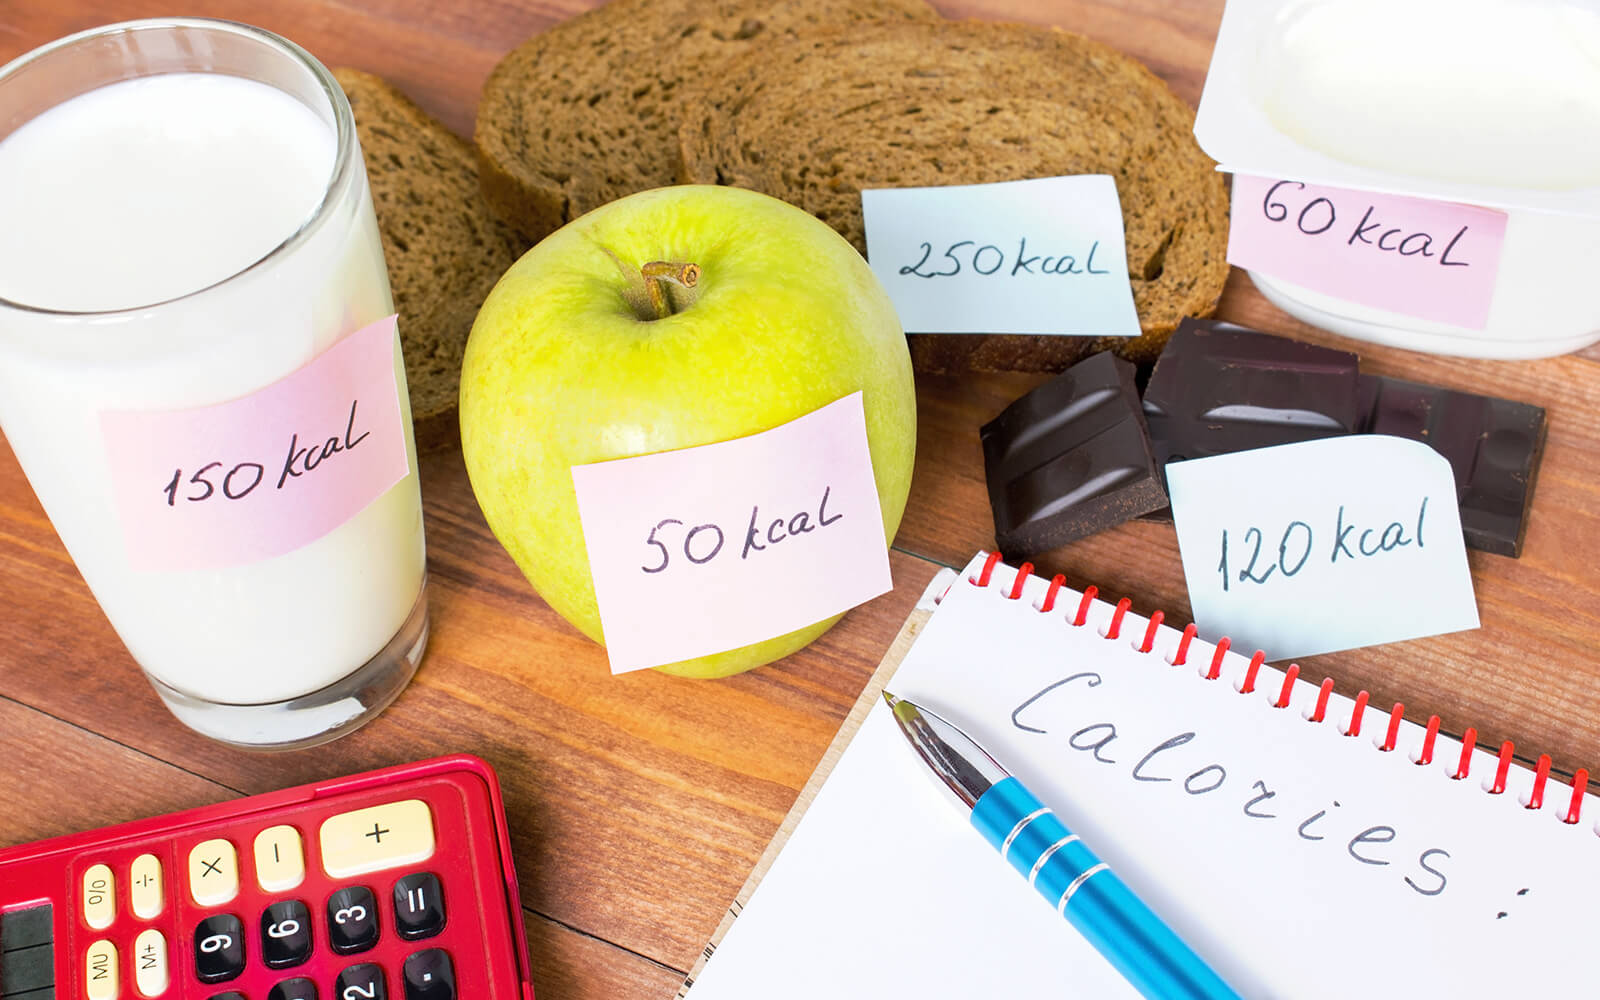 60 kcal
250 kcal
150 kcal
50 kcal
120 kcal
Calories:
+
−
×
÷
%
=
3
6
9
M+
MU
.
2